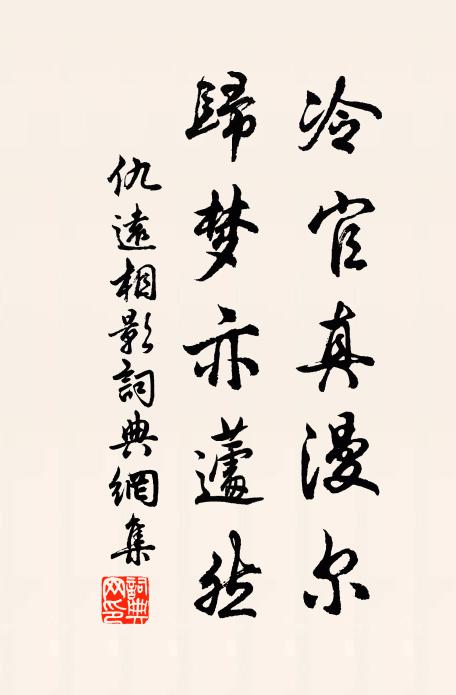 冷官真漫尔
归梦亦蘧然
仇远相影词典网集
词典网印